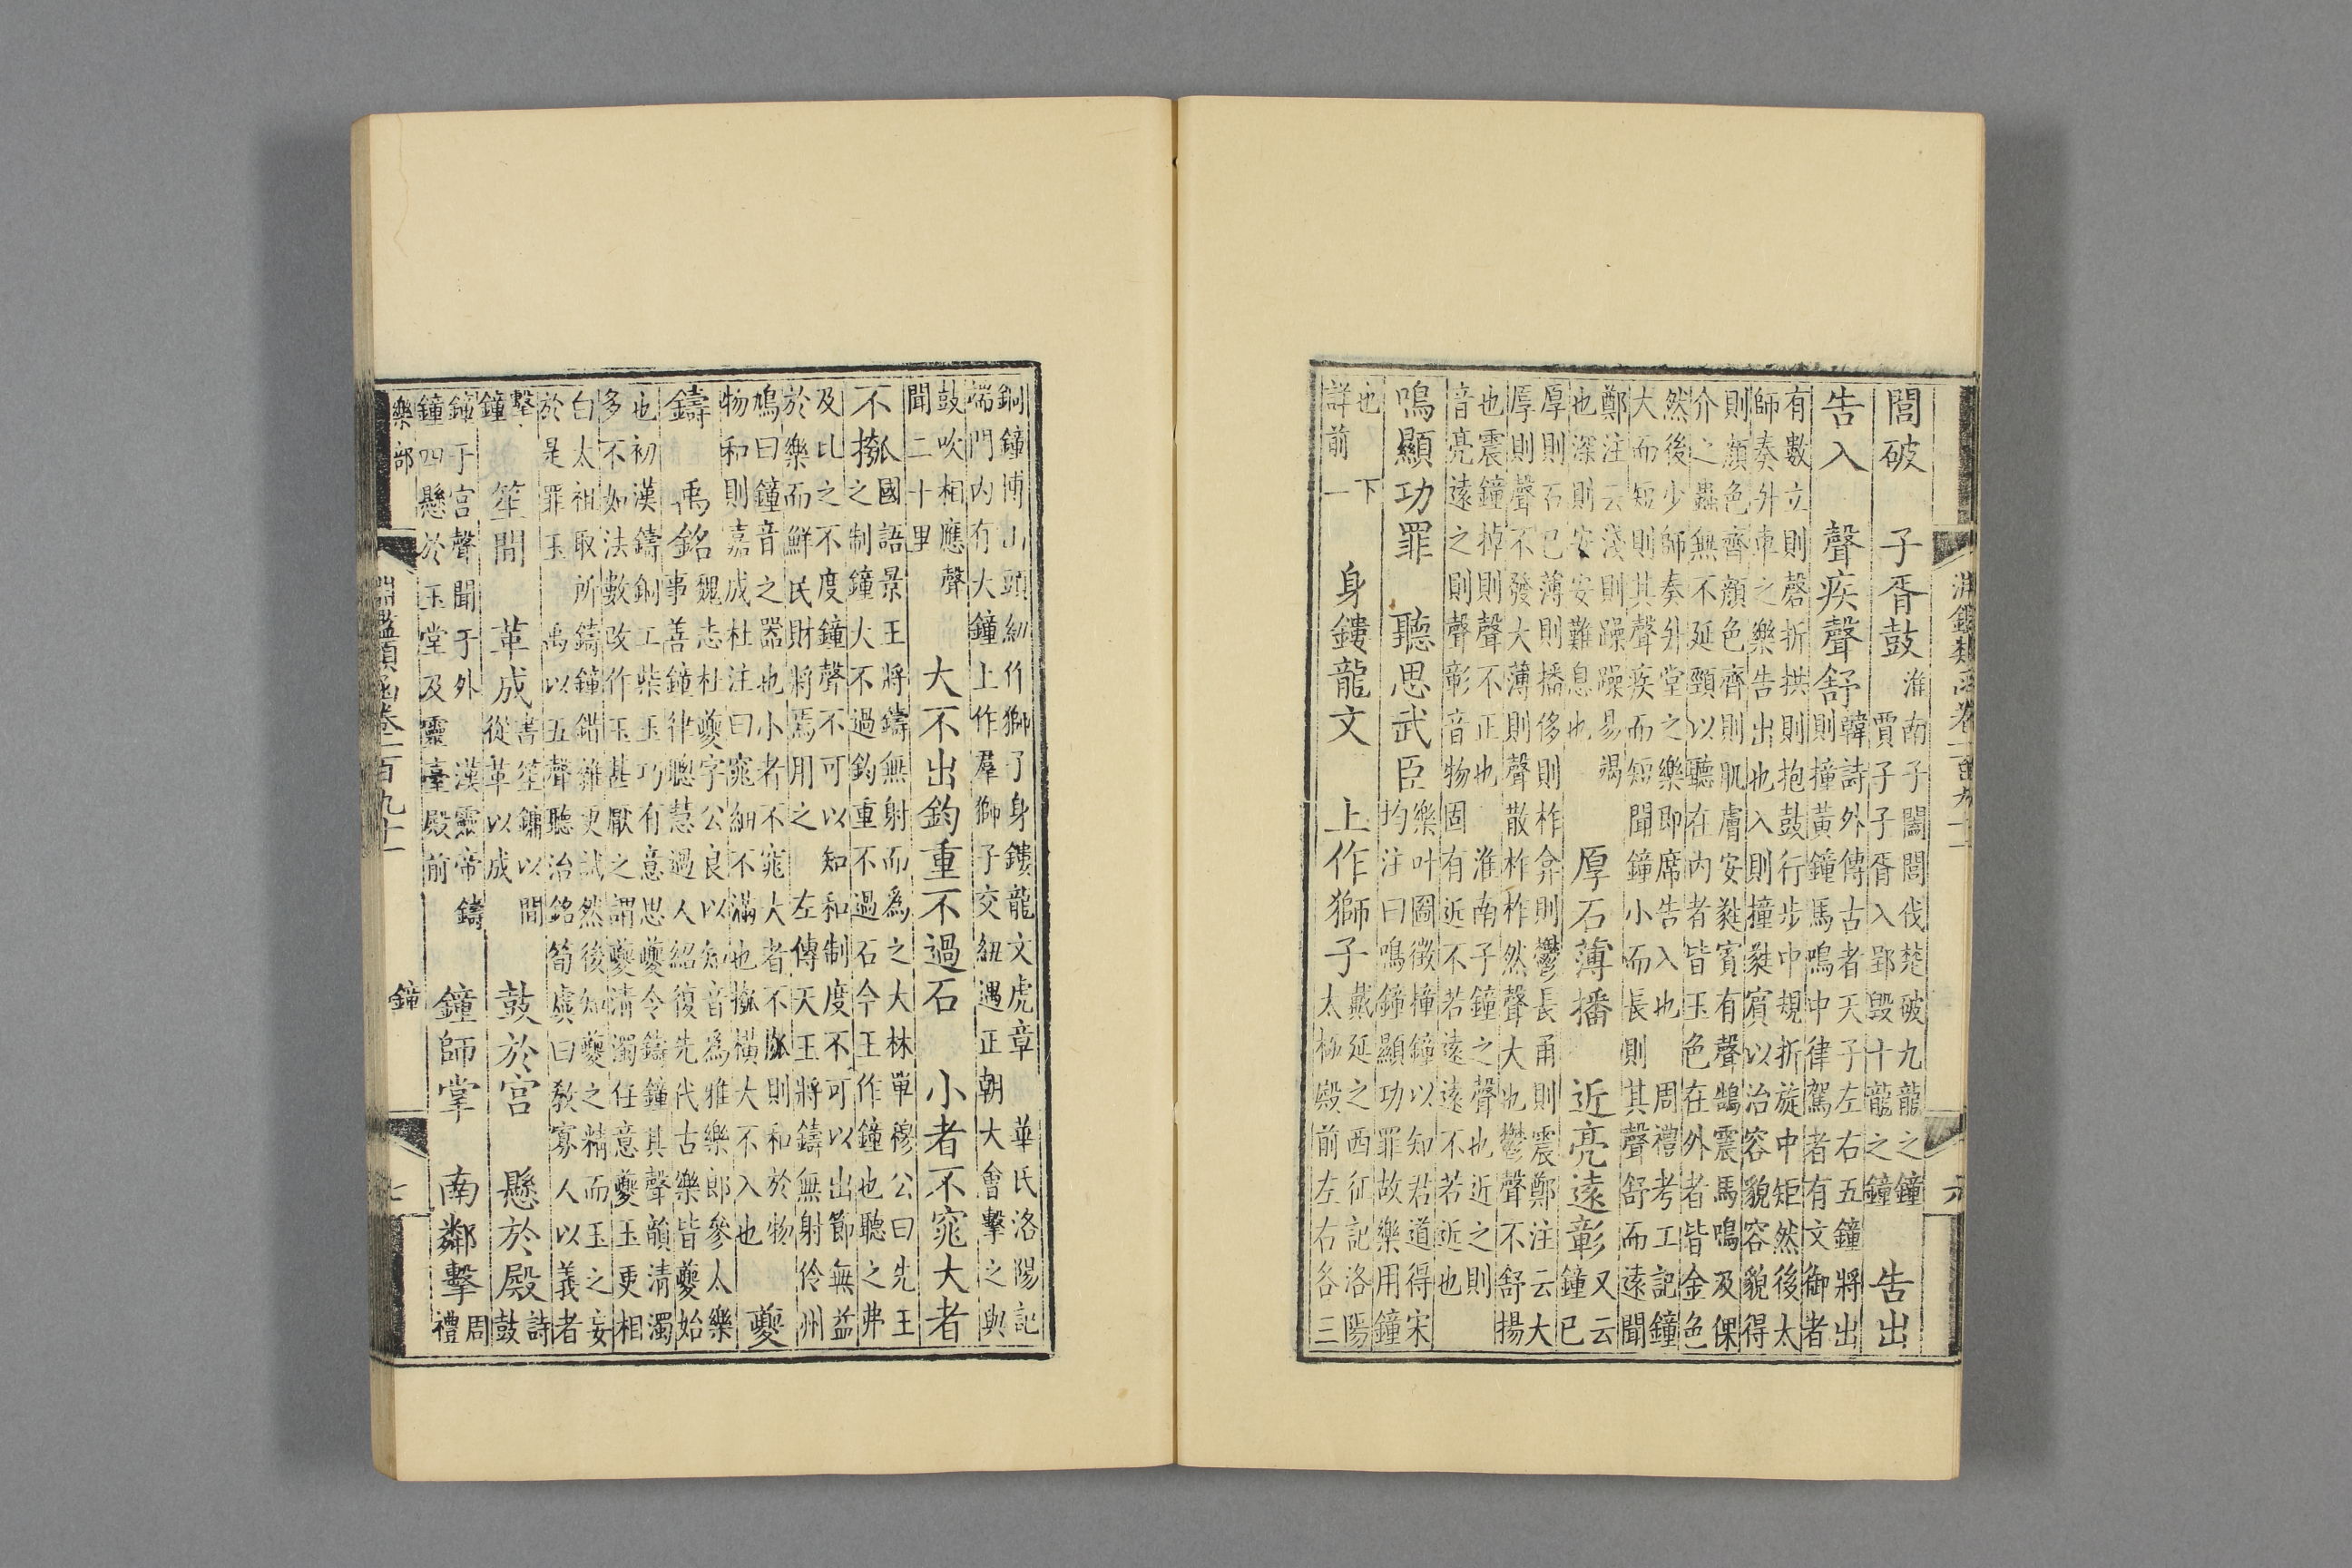 淵鑑類函卷一百九十一　六
閭破　子胥鼓
淮南子闔閭伐楚破九龍之鐘
賈子子胥入郢毀十龍之鐘
告出
告入　聲疾聲舒
韓詩外傳古者天子左右五鐘將出
則撞黃鐘馬鳴中律駕者有文御者
有數立則磬折拱則抱鼓行步中規折旋中矩然後太
師奏升車之樂告出也入則撞蕤賓以治容貌容貌得
則顏色齊顏色齊則肌膚安蕤賓有聲鵠震馬鳴及倮
介之蟲無不延頸以聽在內者皆玉色在外者皆金色
然後少師奏升堂之樂即席告入也　周禮考工記鐘
大而短則其聲疾而短聞鐘小而長則其聲舒而遠聞
鄭注云淺則躁躁易竭
也深則安安難息也
厚石薄播　近亮遠彰
又云
鐘已
厚則石已薄則播侈則柞弇則鬱長甬則震鄭注云大
厚則聲不發大薄則聲散柞柞然聲大也鬱聲不舒揚
也震鐘掉則聲不正也　淮南子鐘之聲也近之則
音亮遠之則聲彰音物固有近不若遠遠不若近也
鳴顯功罪　聽思武臣
樂叶圖徵撞鐘以知君道得宋
均注曰鳴鐘顯功罪故樂用鐘
也　下
詳前一
身鏤龍文　上作獅子
戴延之西征記洛陽
太極殿前左右各三
銅鐘博山頭紐作獅子身鏤龍文虎章　華氏洛陽記
端門內有大鐘上作羣獅子交紐遇正朝大會擊之與
鼓吹相應聲
聞二十里
大不出鈞重不過石　小者不窕大者
不摦
國語景王將鑄無射而為之大林單穆公曰先王
之制鐘大不過鈞重不過石今王作鐘也聽之弗
及比之不度鐘聲不可以知和制度不可以出節無益
於樂而鮮民財將焉用之　左傳天王將鑄無射伶州
鳩曰鐘音之器也小者不窕大者不摦則和於物
物和則嘉成杜注曰窕細不滿也摦橫大不入也
夔
鑄　禹銘
魏志杜夔字公良以知音為雅樂郎參太樂
事善鐘律聰慧過人紹復先代古樂皆夔始
也初漢鑄銅工柴玉巧有意思夔令鑄鐘其聲韻清濁
多不如法數改作玉甚厭之謂夔清濁任意夔玉更相
白太祖取所鑄鐘錯雜更試然後知夔之精而玉之妄
於是罪玉　禹以五聲聽治銘筍簴曰教寡人以義者
擊
鐘
笙間　革成
書笙鏞以間
從革以成
鼓於宮　懸於殿
詩
鼓
鐘于宮聲聞于外　漢靈帝鑄
鐘四懸於玉堂及靈臺殿前
鐘師掌　南鄰擊
周
禮
樂部　鐘
淵鑑類函卷一百九十一　七